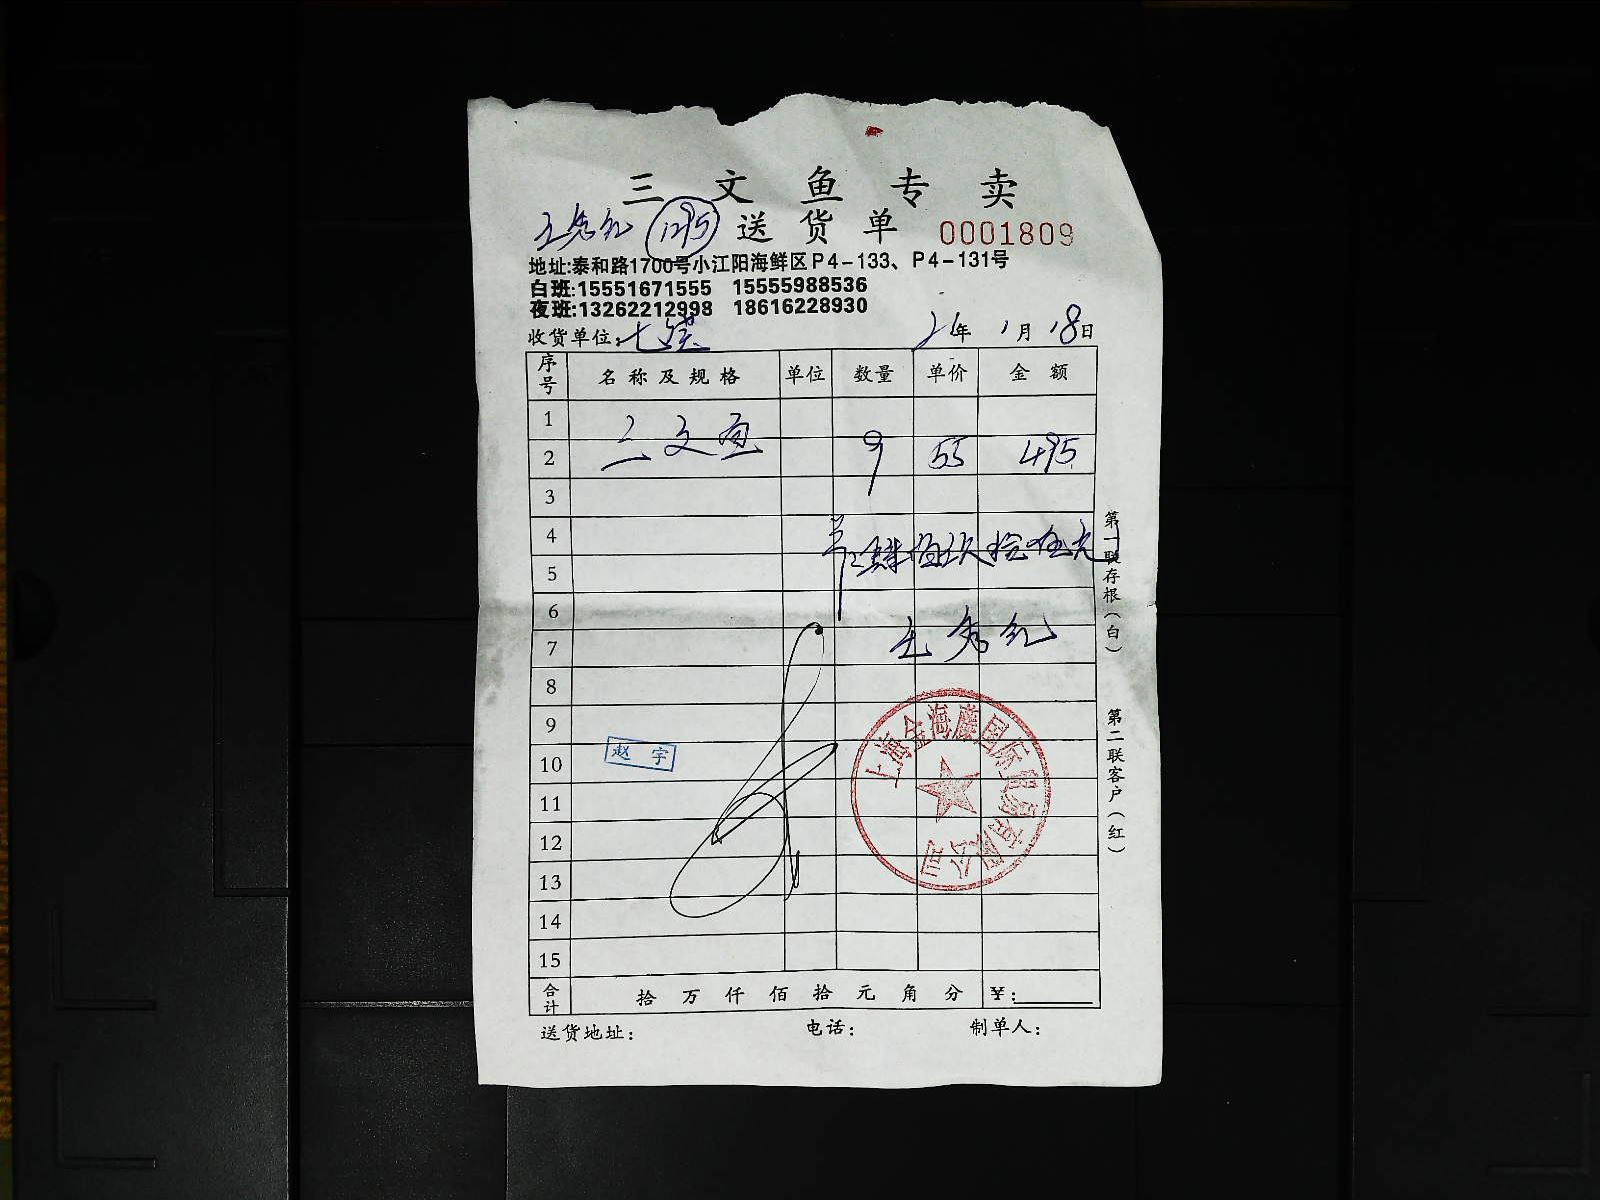 三文鱼专卖
送货单 0001809
地址:泰和路1700号小江阳海鲜区P4-133、P4-131号
白班:15551671555 15555988536
夜班:13262212998 18616228930
收货单位: 21年1月18日
序号 名称及规格 单位 数量 单价 金额
1
2 三文鱼 9 55 495
3
4
5
肆佰玖拾伍元
6
7
8
9
10 赵宇
11
12
13
14
15
上海金海藤国际贸易有限公司
合计 拾万仟佰拾元角分 ¥:
送货地址: 电话: 制单人:
第一联存根(白)
第二联客户(红)